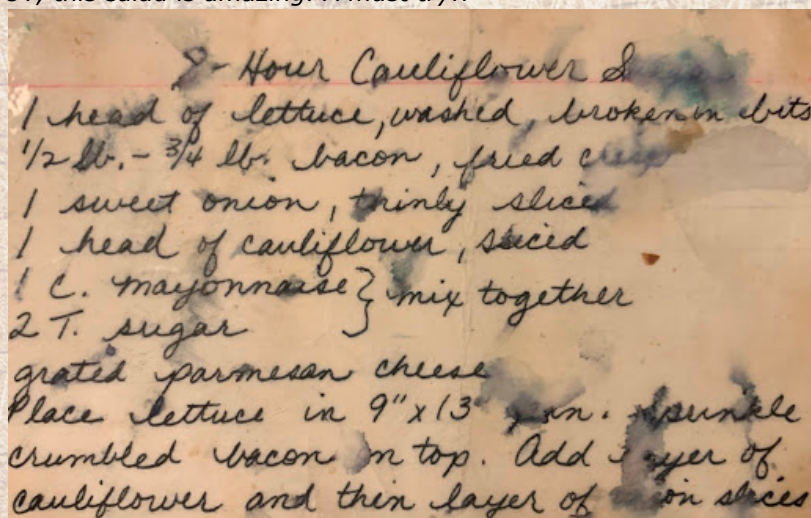 this salad is amazing. A must try!!
8-Hour Cauliflower
1 head of lettuce, washed, broken in bits
1/2 lb. - 3/4 lb. bacon, fried
1 sweet onion, thinly sliced
1 head of cauliflower, sliced
1 C. mayonnaise } mix together
2 T. sugar
grated parmesan cheese
Place lettuce in 9" x 13" . Sprinkle
crumbled bacon on top. Add layer of
cauliflower and thin layer of slices